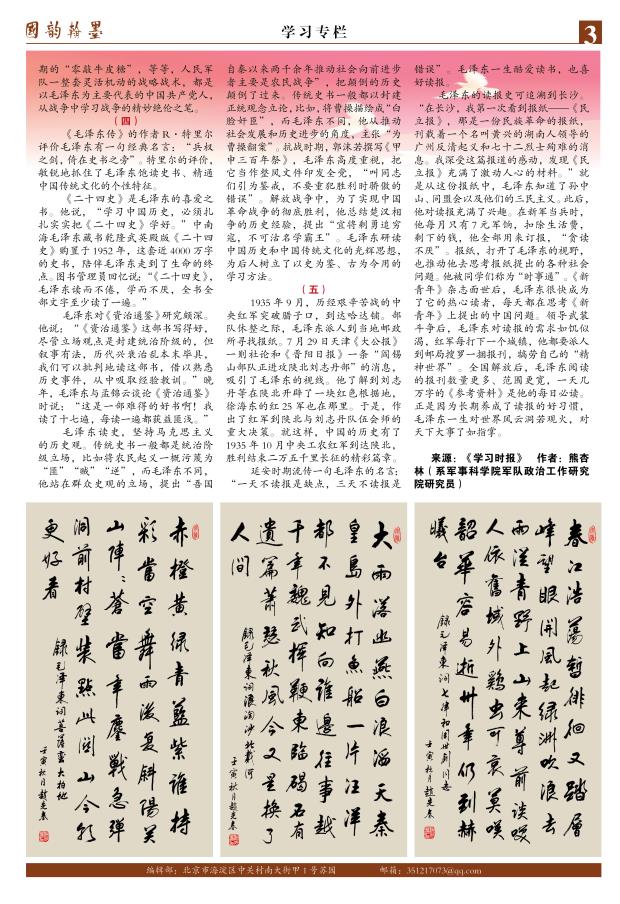 國韵翰墨
学习专栏
3
期的“零敲牛皮糖”，等等，人民军
队一整套灵活机动的战略战术，都是
以毛泽东为主要代表的中国共产党人，
从战争中学习战争的精妙绝伦之笔。
（四）
《毛泽东传》的作者 R·特里尔
评价毛泽东有一句经典名言：“兵权
之剑，倚在史书之旁”。特里尔的评价，
敏锐地抓住了毛泽东饱读史书、精通
中国传统文化的个性特征。
《二十四史》是毛泽东的喜爱之
书。他说，“学习中国历史，必须扎
扎实实把《二十四史》学好。”中南
海毛泽东藏书乾隆武英殿版《二十四
史》购置于 1952 年，这套近 4000 万字
的史书，陪伴毛泽东走到了生命的终
点。图书管理员回忆说：“《二十四史》，
毛泽东读而不倦，学而不厌，全书全
部文字至少读了一遍。”
毛泽东对《资治通鉴》研究颇深。
他说：“《资治通鉴》这部书写得好，
尽管立场观点是封建统治阶级的，但
叙事有法，历代兴衰治乱本末毕具，
我们可以批判地读这部书，借以熟悉
历史事件，从中吸取经验教训。”晚
年，毛泽东与孟锦云谈论《资治通鉴》
时说：“这是一部难得的好书啊！我
读了十七遍，每读一遍都获益匪浅。”
毛泽东读史，坚持马克思主义
的历史观。传统史书一般都是统治阶
级立场，比如将农民起义一概污蔑为
“匪”“贼”“逆”，而毛泽东不同，
他站在群众史观的立场，提出“吾国
自秦以来两千余年推动社会向前进步
者主要是农民战争”，把颠倒的历史
颠倒了过来。传统史书一般都以封建
正统观念立论，比如，将曹操描绘成“白
脸奸臣”，而毛泽东不同，他从推动
社会发展和历史进步的角度，主张“为
曹操翻案”。抗战时期，郭沫若撰写《甲
申三百年祭》，毛泽东高度重视，把
它当作整风文件印发全党，“叫同志
们引为鉴戒，不要重犯胜利时骄傲的
错误”。解放战争中，为了实现中国
革命战争的彻底胜利，他总结楚汉相
争的历史经验，提出“宜将剩勇追穷
寇，不可沽名学霸王”。毛泽东研读
中国历史和中国传统文化的光辉思想，
为后人树立了以史为鉴、古为今用的
学习方法。
（五）
1935 年 9 月，历经艰辛苦战的中
央红军突破腊子口，到达哈达铺。部
队休整之际，毛泽东派人到当地邮政
所寻找报纸。7 月 29 日天津《大公报》
一则社论和《晋阳日报》一条“阎锡
山部队正进攻陕北刘志丹部”的消息，
吸引了毛泽东的视线。他了解到刘志
丹等在陕北开辟了一块红色根据地，
徐海东的红 25 军也在那里。于是，作
出了红军到陕北与刘志丹队伍会师的
重大决策。就这样，中国的历史有了
1935 年 10 月中央工农红军到达陕北，
胜利结束二万五千里长征的精彩篇章。
延安时期流传一句毛泽东的名言：
“一天不读报是缺点，三天不读报是
错误”。毛泽东一生酷爱读书，也喜
好读报。
毛泽东的读报史可追溯到长沙。
“在长沙，我第一次看到报纸——《民
立报》，那是一份民族革命的报纸，
刊载着一个名叫黄兴的湖南人领导的
广州反清起义和七十二烈士殉难的消
息。我深受这篇报道的感动，发现《民
立报》充满了激动人心的材料。”就
是从这份报纸中，毛泽东知道了孙中
山、同盟会以及他们的三民主义。此后，
他对读报充满了兴趣。在新军当兵时，
他每月只有 7 元军饷，扣除生活费，
剩下的钱，他全部用来订报，“贪读
不厌”。报纸，打开了毛泽东的视野，
也推动他去思考报纸提出的各种社会
问题。他被同学们称为“时事通”。《新
青年》杂志面世后，毛泽东很快成为
了它的热心读者，每天都在思考《新
青年》上提出的中国问题。领导武装
斗争后，毛泽东对读报的需求如饥似
渴，红军每打下一个城镇，他都要派人
到邮局搜罗一捆报刊，犒劳自己的“精
神世界”。全国解放后，毛泽东阅读
的报刊数量更多、范围更宽，一天几
万字的《参考资料》是他的每日必读。
正是因为长期养成了读报的好习惯，
毛泽东一生对世界风云洞若观火，对
天下大事了如指掌。
来源：《学习时报》 作者：熊杏
林（系军事科学院军队政治工作研究
院研究员）
春江浩蕩暫徘徊又踏層
峰望眼開風起綠洲吹浪去
雨從青野上山來尊前談笑
人依舊域外雞虫可哀莫嘆
韶華容易逝卅年仍到赫
曦台
錄毛澤東詞七律和周世釗同志
壬寅秋月趙先春
大雨落幽燕白浪滔天秦
皇島外打魚船一片汪洋
都不見知向誰邊往事越
千年魏武揮鞭東臨碣石有
遺篇蕭瑟秋風今又是換了
人間
錄毛澤東詞浪淘沙北戴河
壬寅秋月趙先春
赤橙黃綠青藍紫誰持
彩當空舞雨後复斜陽關
山陣〻蒼當年鏖戰急彈
洞前村壁裝點此關山今朝
更好看
錄毛澤東詞菩薩蠻大柏地
壬寅秋月趙先春
编辑部：北京市海淀区中关村南大街甲 1 号苏园
邮箱：351217073@qq.com